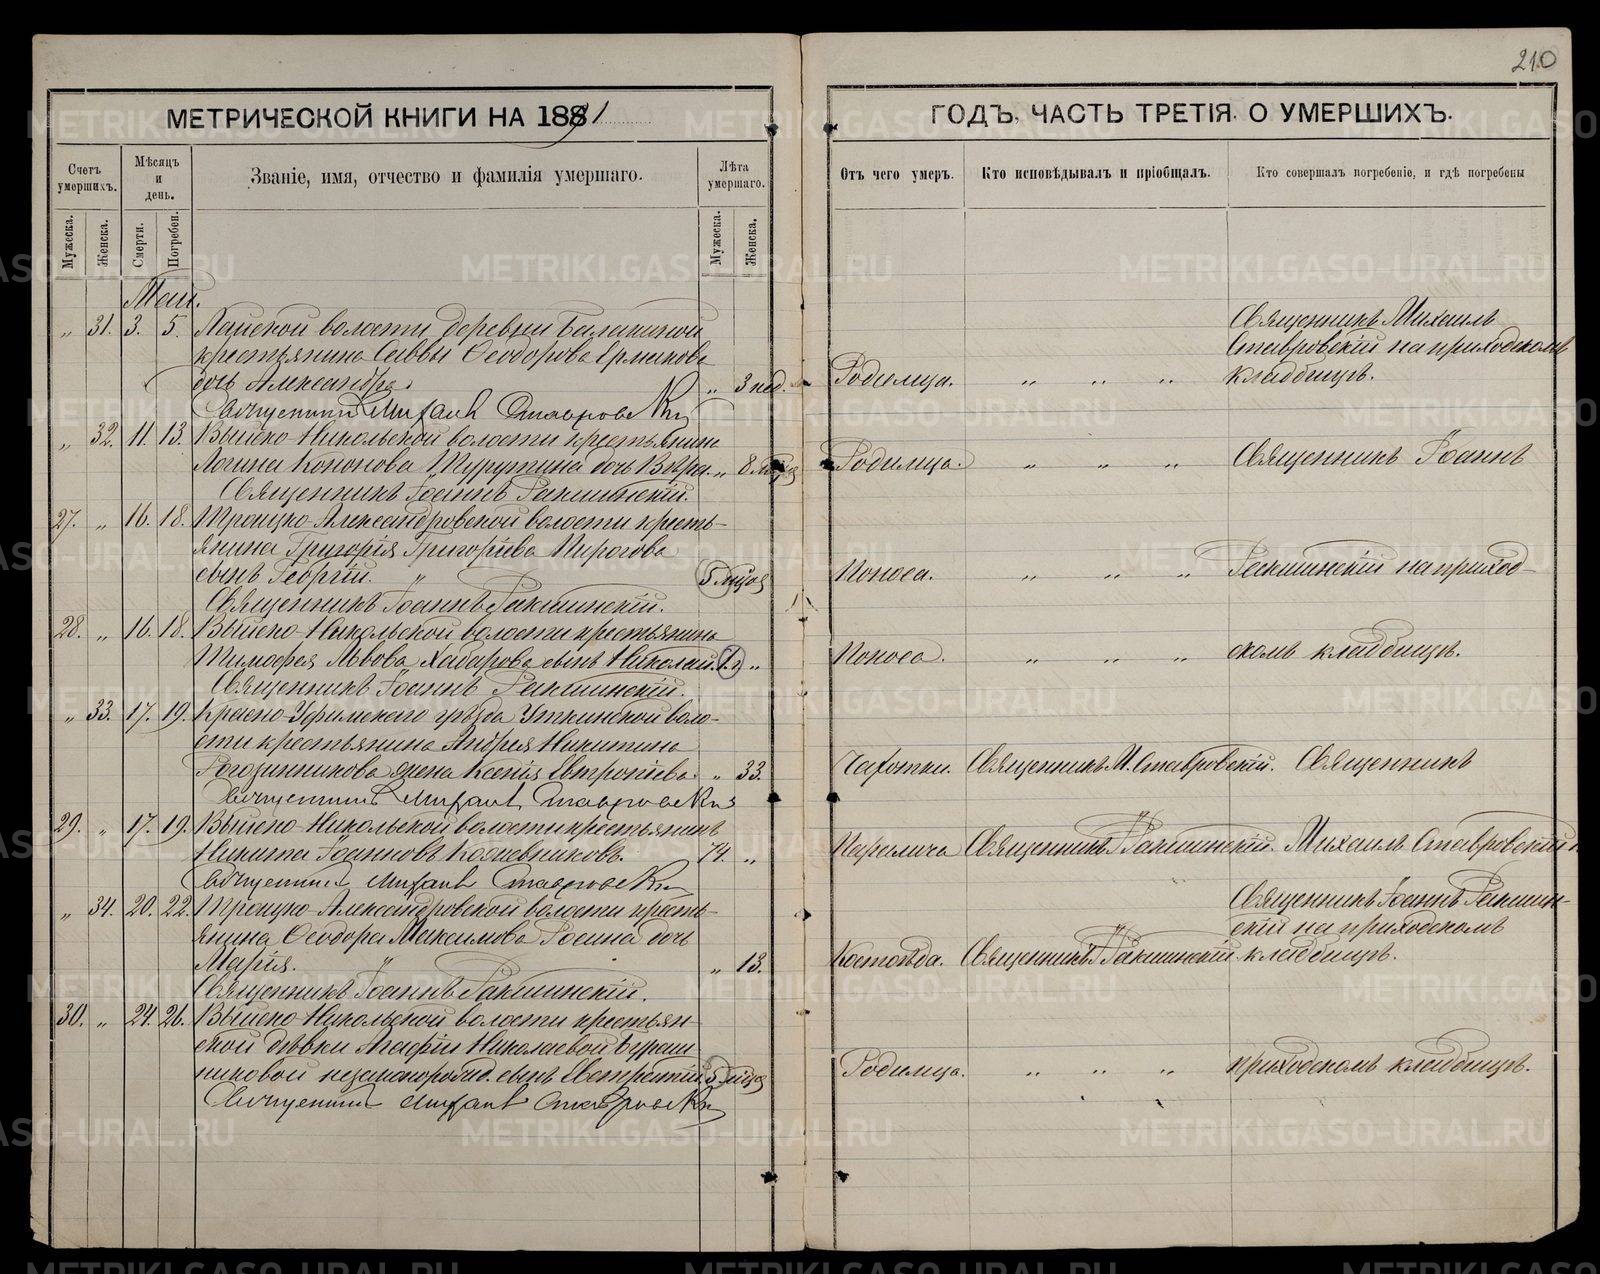 210
МЕТРИЧЕСКОЙ КНИГИ НА 1891
ГОДЪ, ЧАСТЬ ТРЕТІЯ. О УМЕРШИХЪ.
Счетъ умершихъ.
Мѣсяцъ и день.
Званіе, имя, отчество и фамилія умершаго.
Лѣта умершаго.
Отъ чего умеръ.
Кто исповѣдывалъ и пріобщалъ.
Кто совершалъ погребеніе, и гдѣ погребены
Мужеска.
Женска.
Смерти.
Погребен.
Мужеска.
Женска.
Май.
„ 31. 3. 5. Лайской волости деревни Балакиной
крестьянина Саввы Ѳеодорова Ермакова
дочь Александра. „ 3 нед. Родимца. „ „ „
Священникъ Михаилъ
Ставровскій на приходскомъ
кладбищѣ.
Священникъ Михаилъ Ставровскій
„ 32. 11. 13. Выйско-Никольской волости крестьянина
Логина Кононова дочь Вѣра. „ 8 мѣсяц Родимца. „ „ „ Священникъ Іоаннъ
Священникъ Іоаннъ Ракшинскій.
27. „ 16. 18. Троицко-Александровской волости кресть-
янина Григорія Григоріева Пирогова
сынъ Георгій. „ 5 мѣсяц Поноса. „ „ „ Ракшинскій на приход-
Священникъ Іоаннъ Ракшинскій.
28. „ 16. 18. Выйско-Никольской волости крестьянина
Тимофея Львова Хабарова сынъ Николай. 1 г „ Поноса. „ „ „ скомъ кладбищѣ.
Священникъ Іоаннъ Ракшинскій.
„ 33. 17. 19. Красно-Уфимскаго уѣзда Уткинской воло-
сти крестьянина Андрея Никитина
Рогозинникова жена Ксенія Евтропіева. „ 33. Чахотки. Священникъ М. Ставровскій. Священникъ
Священникъ Михаилъ Ставровскій
29. „ 17. 19. Выйско-Никольской волости крестьянинъ
Никита Іоанновъ Кожевниковъ. 74. „ Паралича Священникъ І. Ракшинскій. Михаилъ Ставровскій
Священникъ Михаилъ Ставровскій
„ 34. 20. 22. Троицко-Александровской волости кресть-
янина Ѳеодора Максимова Росина дочь
Марія. „ „ 13. Костоѣда. Священникъ І. Ракшинскій.
Священникъ Іоаннъ Ракшин-
скій на приходскомъ
кладбищѣ.
Священникъ Іоаннъ Ракшинскій.
30. „ 24. 26. Выйско-Никольской волости крестьян-
ской дѣвки Агафіи Николаевой
незаконорожд. сынъ Евстратій. 5 мѣсяц Родимца. „ „ „ приходскомъ кладбищѣ.
Священникъ Михаилъ Ставровскій
METRIKI.GASO-URAL.RU